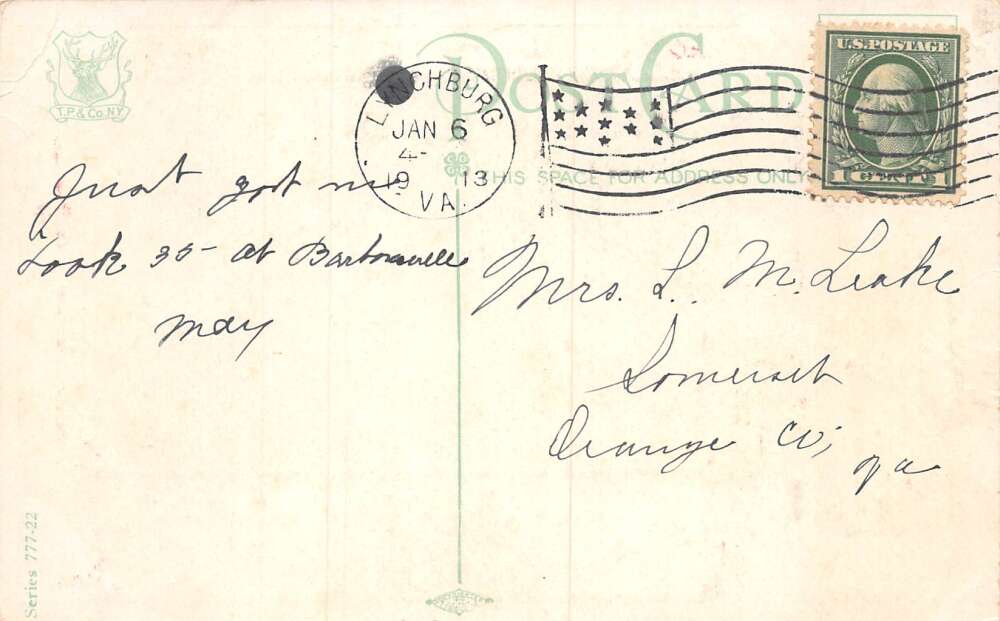 T.P. & Co. N.Y.
POST CARD
LYNCHBURG
JAN 6
4-
1913
VA.
THIS SPACE FOR ADDRESS ONLY
U.S. POSTAGE
1
Just got in.
Look 35- at
May
Mrs. L. M. Leake
Somerset
Orange Co,
Va
Series 777-22